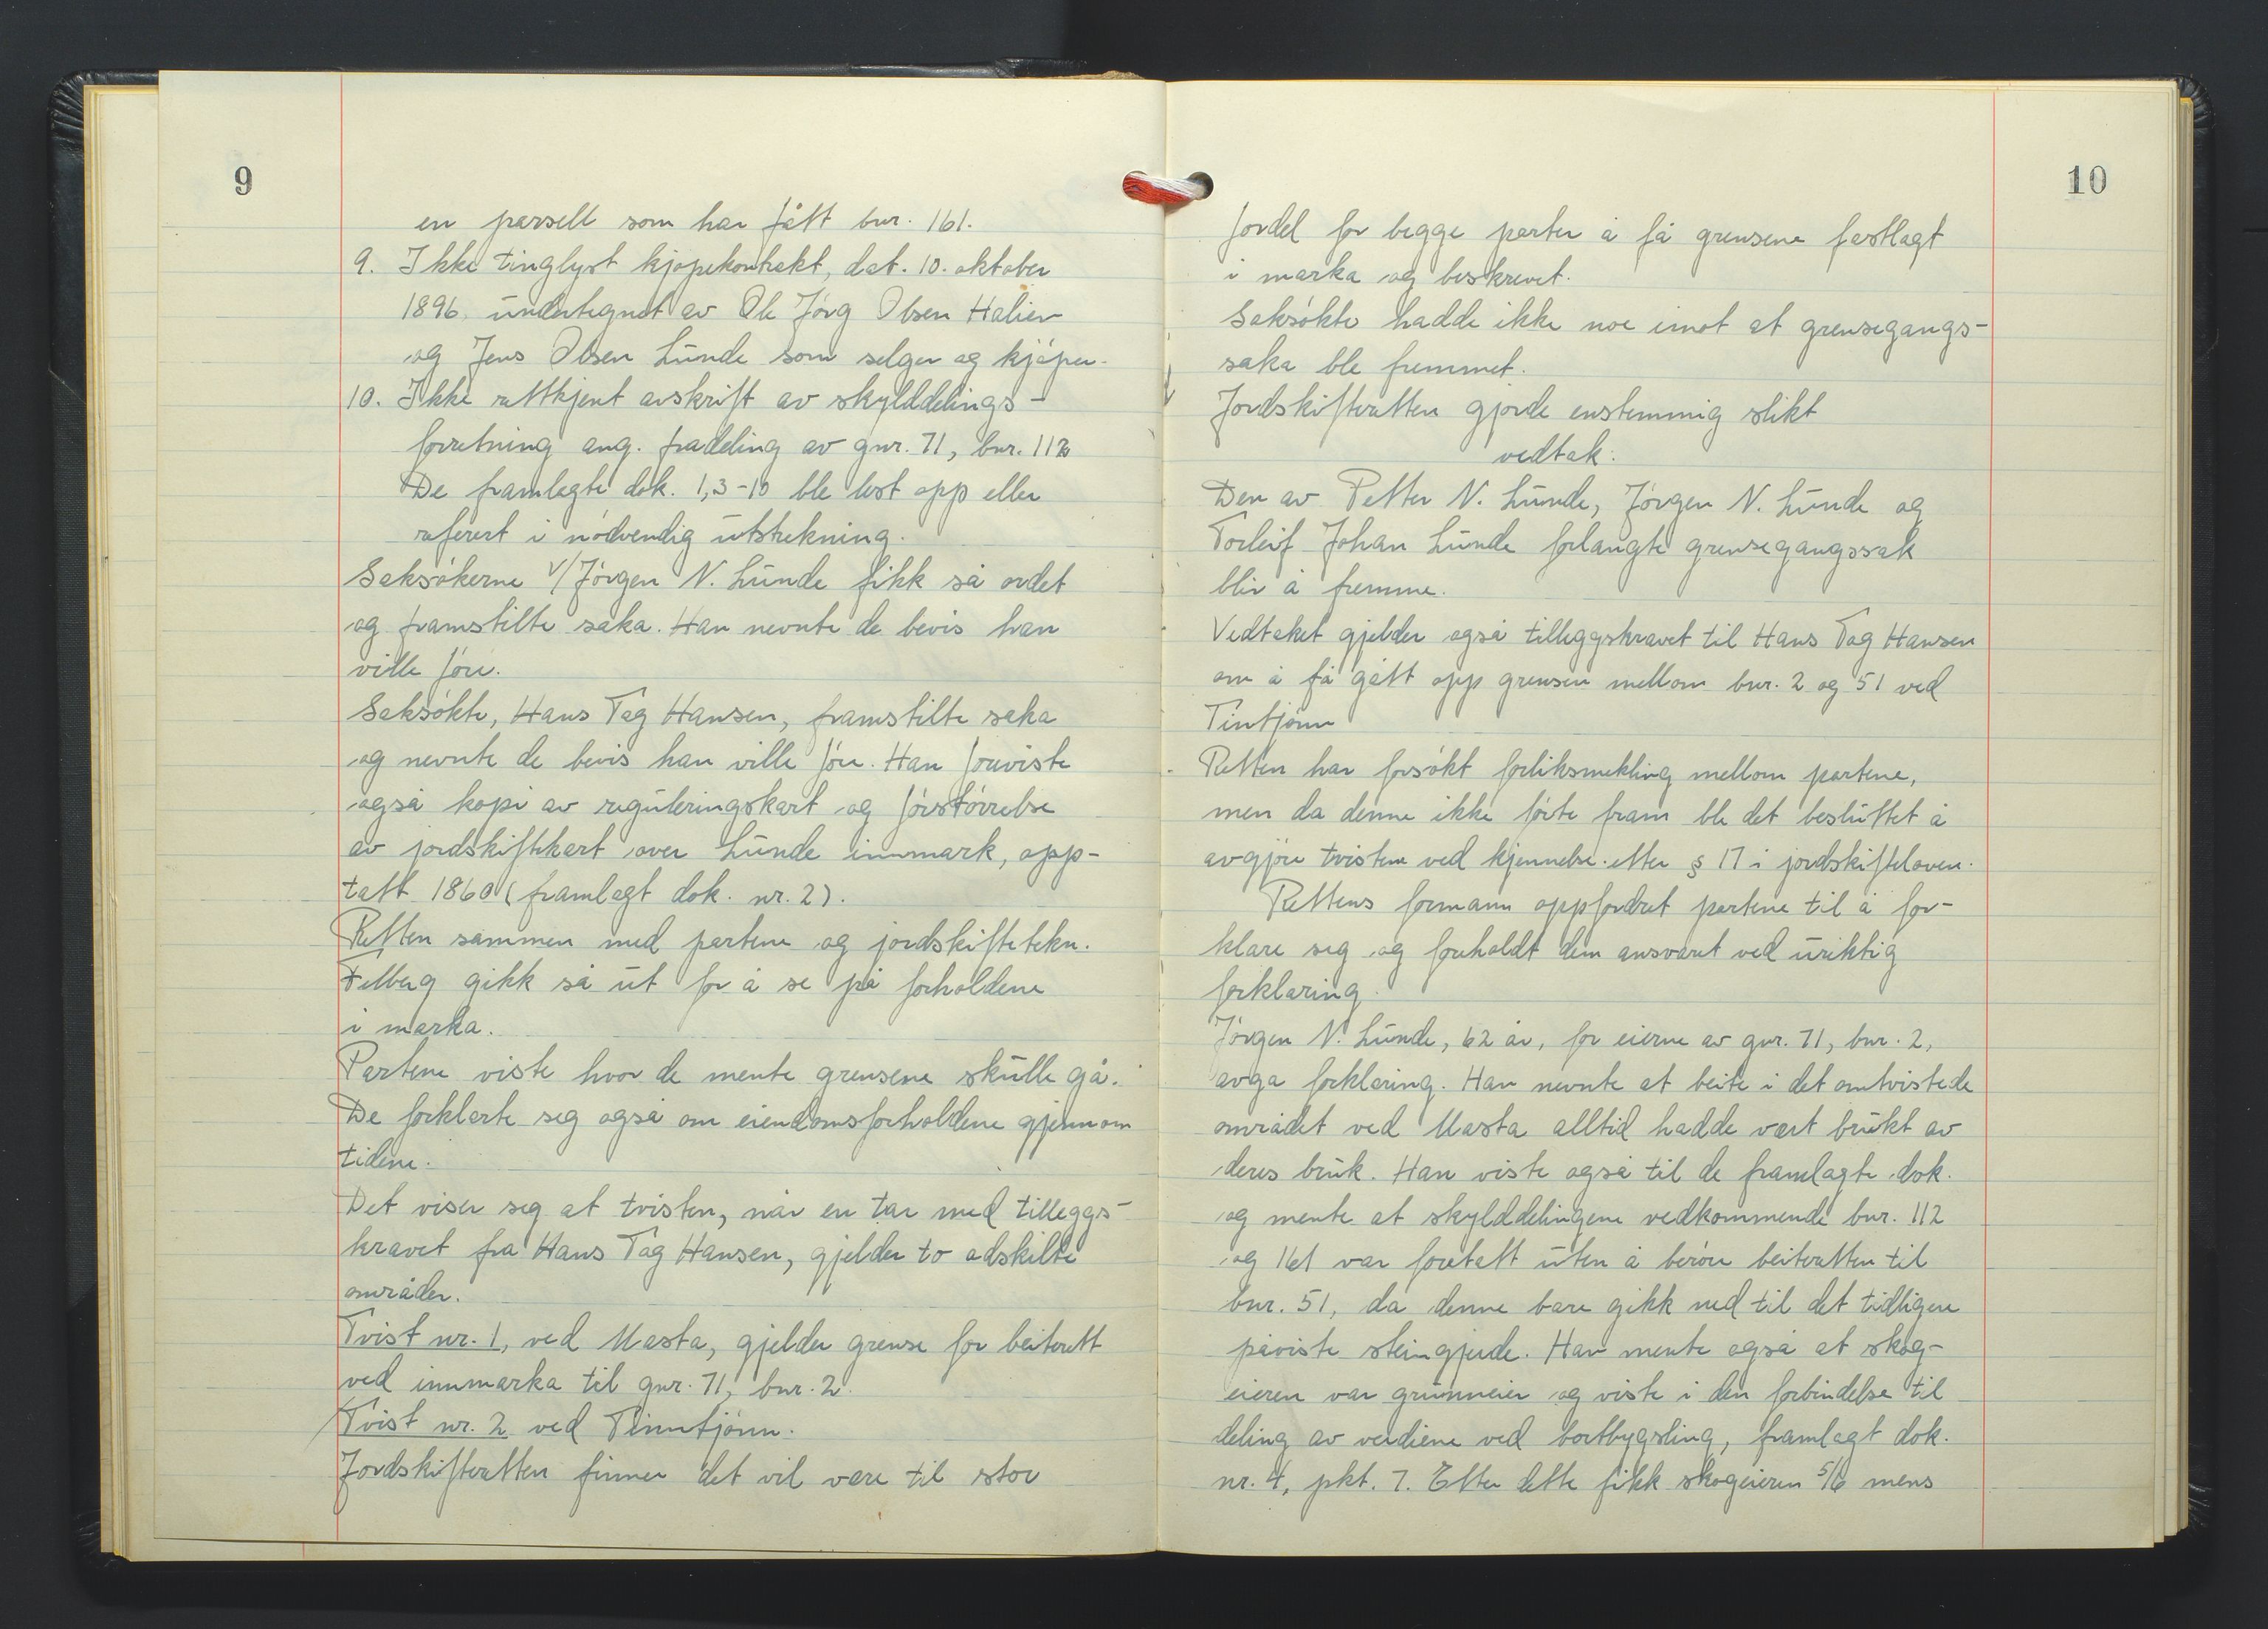 9
en parsell som har fått bnr. 161.
9. Ikke tinglyst kjøpekontrakt, dat. 10. oktober
1896 undertegnet av Ole Jørg Olsen Halien
og Jens Olsen Lunde som selger og kjøper.
10. Ikke rettkjent avskrift av skylddelings-
forretning ang. fradeling av gnr. 71, bnr. 112
De framlagte dok. 1,3-10 ble lest opp eller
referert i nødvendig utstrekning.
Saksøkerne v/Jørgen N. Lunde fikk så ordet
og framstilte saka. Han nevnte de bevis han
ville føre.
Saksøkte, Hans Tag Hansen, framstilte saka
og nevnte de bevis han ville føre. Han foreviste
også kopi av reguleringskart og forstørrelse
av jordskiftekart over Lunde innmark, opp-
tatt 1860 (framlagt dok. nr. 2).
Retten sammen med partene og jordskiftetekn.
Felberg gikk så ut for å se på forholdene
i marka.
Partene viste hvor de mente grensene skulle gå.
De forklarte seg også om eiendomsforholdene gjennom
tidene.
Det viser seg at tvisten, når en tar med tilleggs-
kravet fra Hans Tag Hansen, gjelder to adskilte
områder.
Tvist nr. 1, ved Masta, gjelder grense for beiterett
ved innmarka til gnr. 71, bnr. 2.
Tvist nr. 2 ved Tinntjønn.
Jordskifteretten finner det vil være til stor
10
fordel for begge parter å få grensene fastlagt
i marka og beskrevet.
Saksøkte hadde ikke noe imot at grensegangs-
saka ble fremmet.
Jordskifteretten gjorde enstemmig slikt
vedtak:
Den av Petter N. Lunde, Jørgen N. Lunde og
Torleif Johan Lunde forlangte grensegangssak
blir å fremme.
Vedtaket gjelder også tilleggskravet til Hans Tag Hansen
om å få gått opp grensen mellom bnr. 2 og 51 ved
Tintjønn
Retten har forsøkt forliksmekling mellom partene,
men da denne ikke førte fram ble det besluttet å
avgjøre tvistene ved kjennelse etter § 17 i jordskifteloven.
Rettens formann oppfordret partene til å for-
klare seg og foreholdt dem ansvaret ved uriktig
forklaring.
Jørgen N. Lunde, 62 år, for eierne av gnr. 71, bnr. 2,
avga forklaring. Han nevnte at beite i det omtvistede
området ved Masta alltid hadde vært brukt av
deres bruk. Han viste også til de framlagte dok.
og mente at skylddelingene vedkommende bnr. 112
og 161 var foretatt uten å berøre beiteretten til
bnr. 51, da denne bare gikk ned til det tidligere
påviste steingjerde. Han mente også at skog-
eieren var grunneier og viste i den forbindelse til
deling av verdiene ved bortbygsling, framlagt dok.
nr. 4, pkt. 7. Etter dette fikk skogeieren 5/6 mens